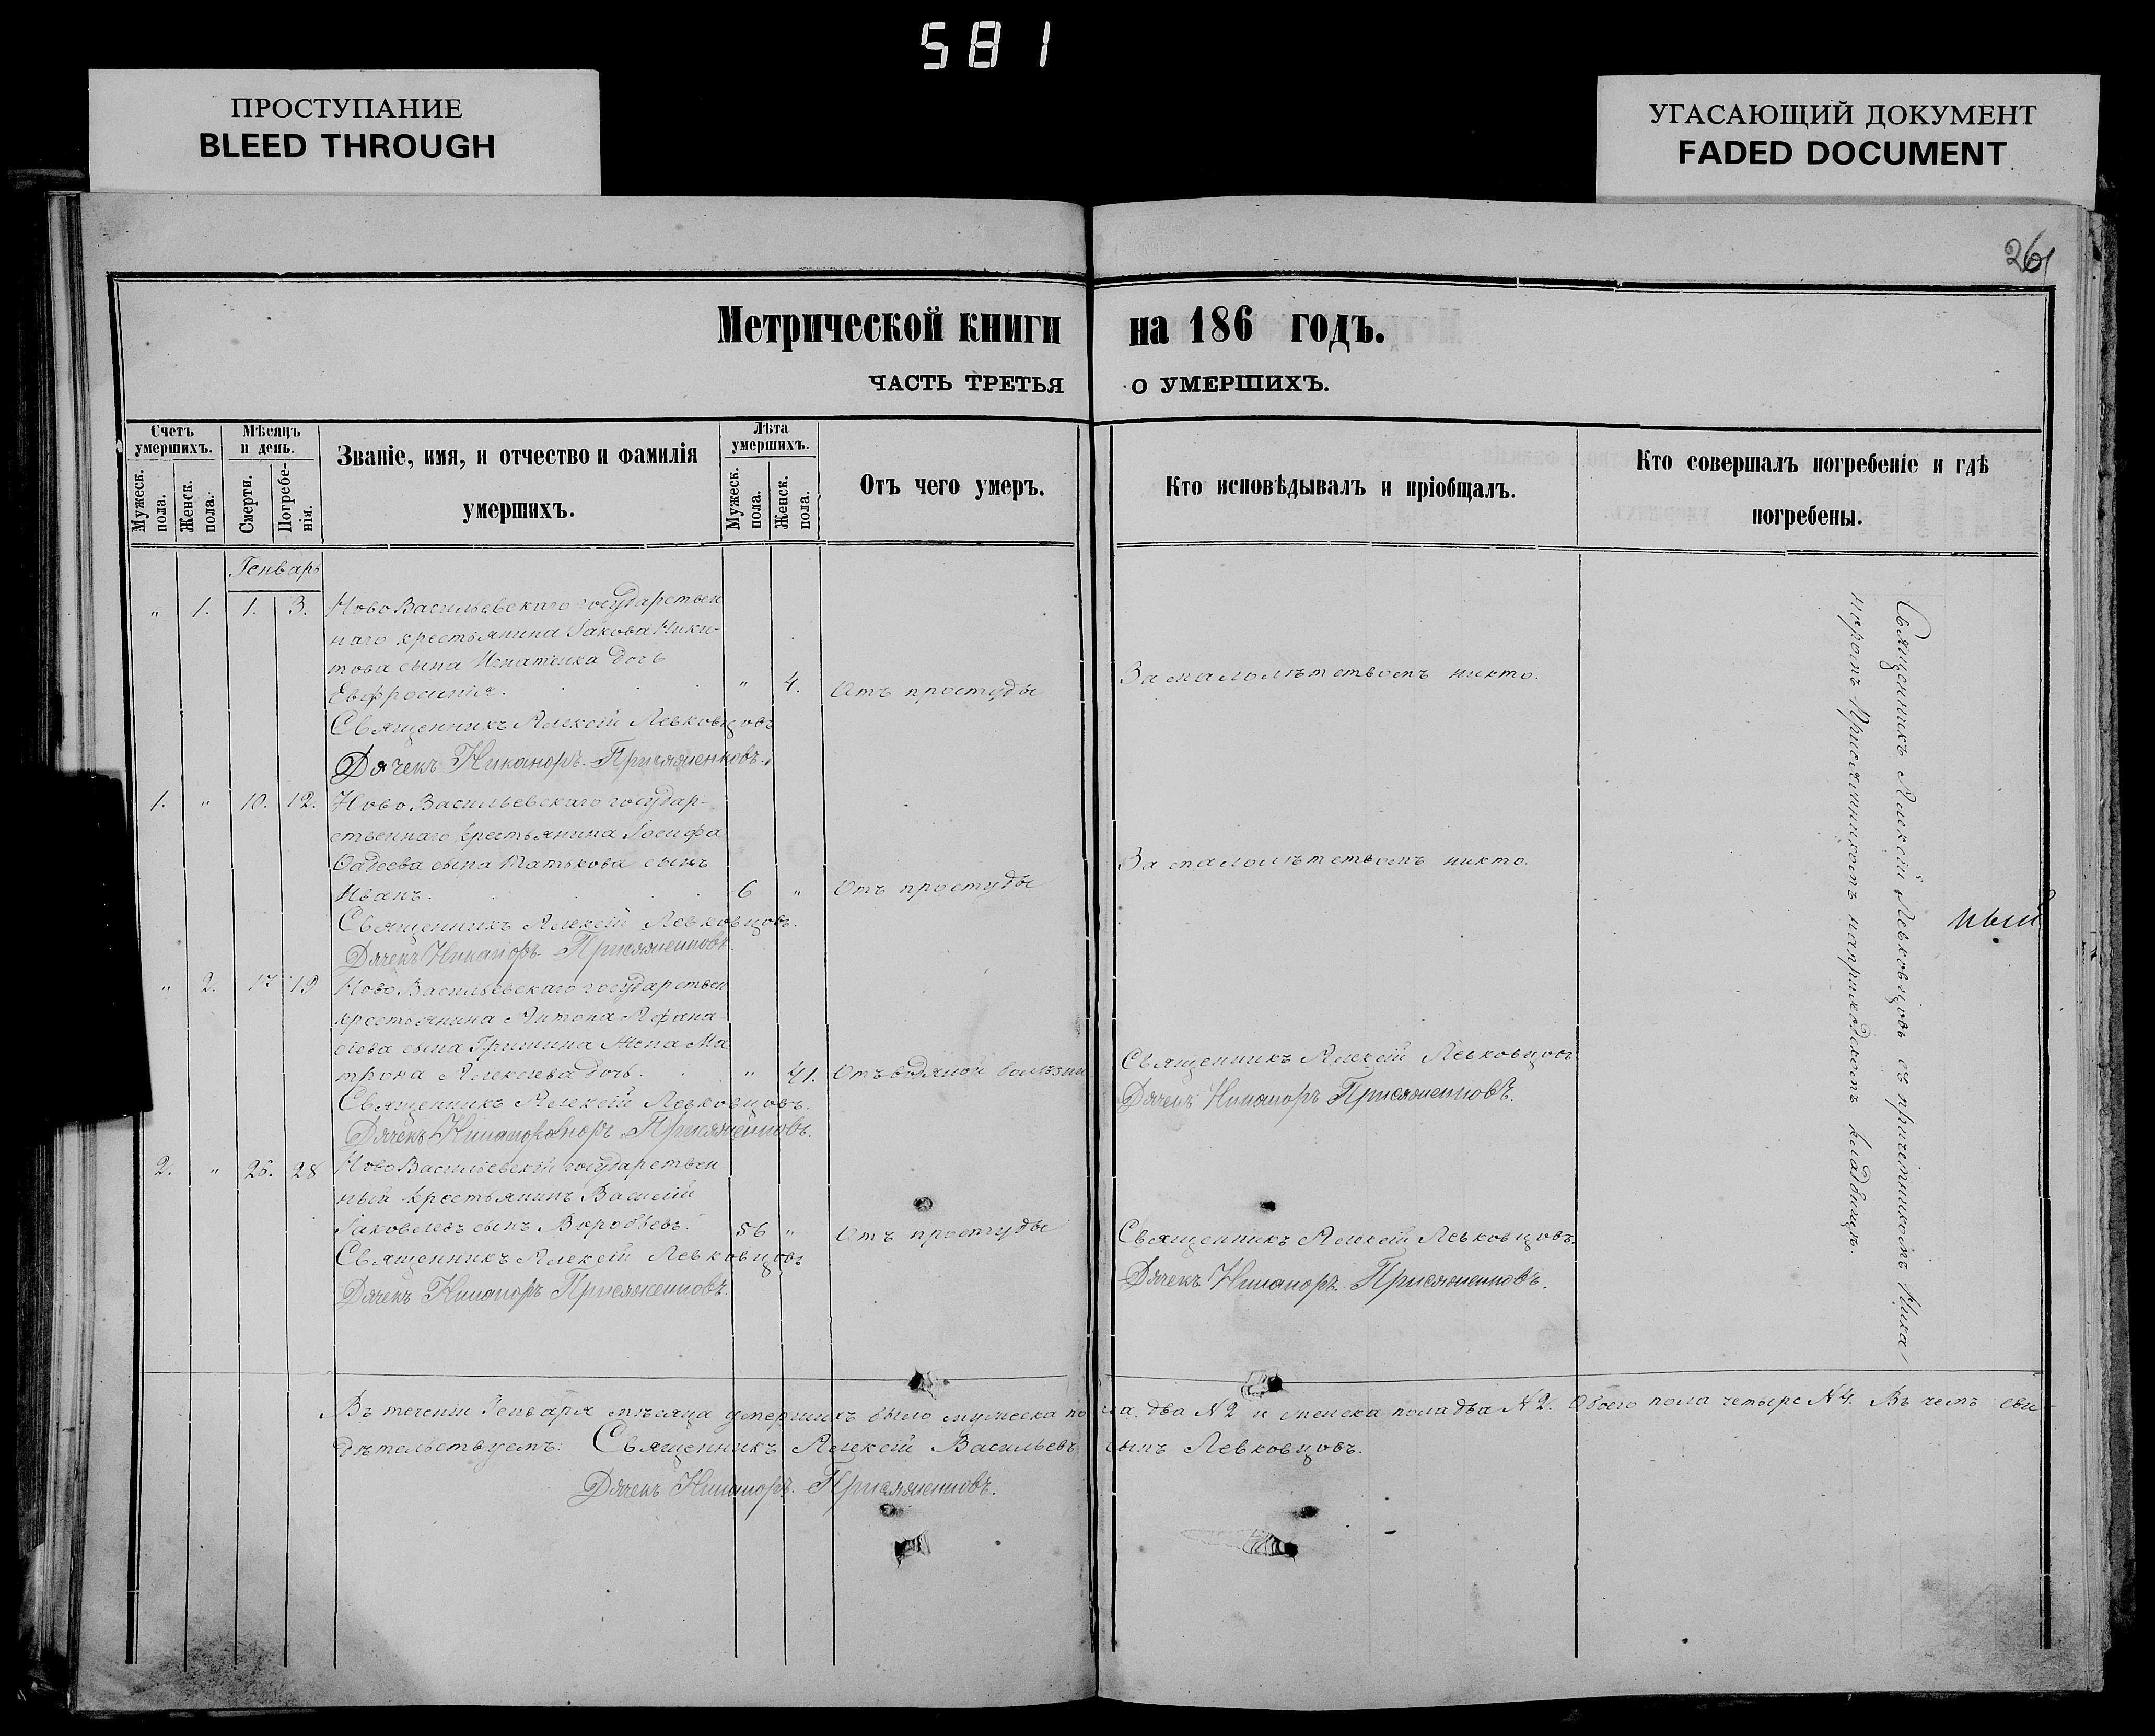 581
ПРОСТУПАНИЕ
BLEED THROUGH
УГАСАЮЩИЙ ДОКУМЕНТ
FADED DOCUMENT
261
Метрической книги на 186 годъ.
ЧАСТЬ ТРЕТЬЯ О УМЕРШИХЪ.
Счетъ умершихъ.
Мужеск. пола.
Женск. пола.
Мѣсяцъ и день.
Смерти.
Погребе-нія.
Званіе, имя, и отчество и Фамилія
умершихъ.
Лѣта умершихъ.
Мужеск. пола.
Женск. пола.
Отъ чего умеръ.
Кто исповѣдывалъ и пріобщалъ.
Кто совершалъ погребеніе и гдѣ
погребены.
Генварь
" 1. 1. 3. НовоВасильевскаго государствен
наго крестьянина Іакова Ники-
това сына Игнатенка дочь
Евфросинія. " 4. Отъ простуды За малолѣтствомъ никто.
Священникъ Алексій Левковцовъ
Дячекъ Никаноръ Присяженковъ.
1. " 10. 12. НовоВасильевскаго государ-
ственнаго крестьянина Іосифа
Фадѣева сына Матькова сынъ
Иванъ. 6 " Отъ простуды За малолѣтствомъ никто.
Священникъ Алексій Левковцовъ.
Дячекъ Никаноръ Присяженковъ.
" 2. 17 19 НовоВасильевскаго государствен
крестьянина Антона Афана
сіева сына Гришина Жена Ма
трона Алексіева дочь. " 41. Отъ водяной болѣзни
Священникъ Алексій Левковцовъ.
Дячекъ Никаноръ Присяженковъ.
Священникъ Алексій Левковцовъ
Дячекъ Никаноръ Присяженковъ.
2. " 26. 28 НовоВасильевскій государствен
ный крестьянинъ Василій
Іаковлевъ сынъ Воробьевъ. 56 " Отъ простуды
Священникъ Алексій Левковцовъ
Дячекъ Никаноръ Присяженковъ.
Священникъ Алексій Левковцовъ.
Дячекъ Никаноръ Присяженковъ.
Священникъ Алексій Левковцовъ съ причетникомъ Ника/
норомъ Присяжниковымъ на приходскомъ кладбищѣ.
ный
Въ теченіи Генваря мѣсяца умершихъ было мужеска пола два №2 и женска пола два №2. Обоего пола четыре №4. Въ чемъ сви-
дѣтельствуемъ: Священникъ Алексій Васильевъ сынъ Левковцовъ.
Дячекъ Никаноръ Присяженковъ.